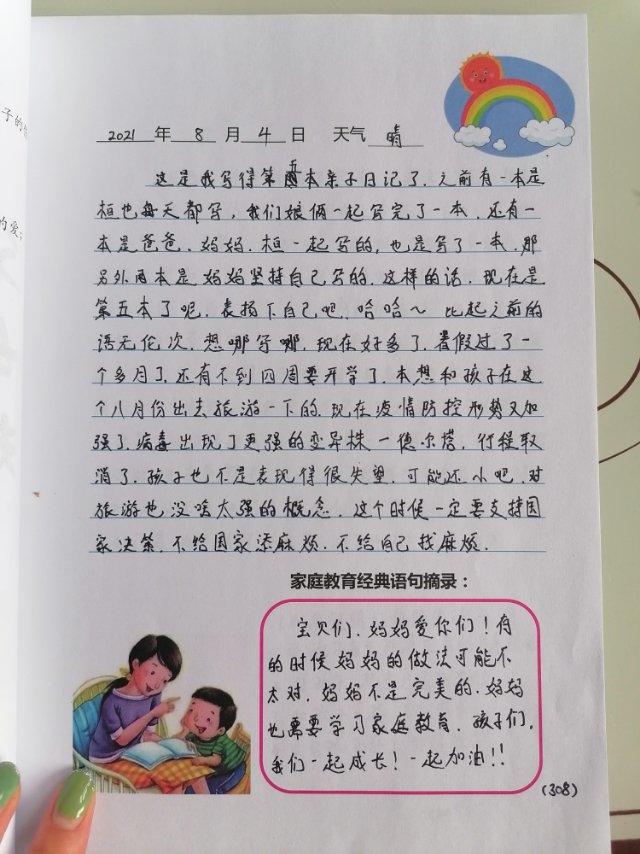 2021 年 8 月 4 日 天气 晴
这是我写得第五本亲子日记了.之前有一本是
桓也每天都写,我们娘俩一起写完了一本,还有一
本是爸爸.妈妈.桓一起写的,也是写了一本.那
另外两本是妈妈坚持自己写的.这样的话.现在是
第五本了呢.表扬下自己吧.哈哈~ 比起之前的
语无伦次.想哪写哪.现在好多了.暑假过了一
个多月了.还有不到四周要开学了.本想和孩子在这
个八月份出去旅游一下的.现在疫情防控形势又加
强了.病毒出现了更强的变异株一德尔塔.行程取
消了.孩子也不是表现得很失望.可能还小吧.对
旅游也没啥太强的概念.这个时候一定要支持国
家决策.不给国家添麻烦.不给自己找麻烦.
家庭教育经典语句摘录:
宝贝们.妈妈爱你们!有
的时候妈妈的做法可能不
太对.妈妈不是完美的.妈妈
也需要学习家庭教育.孩子们.
我们一起成长!一起加油!!
(308)